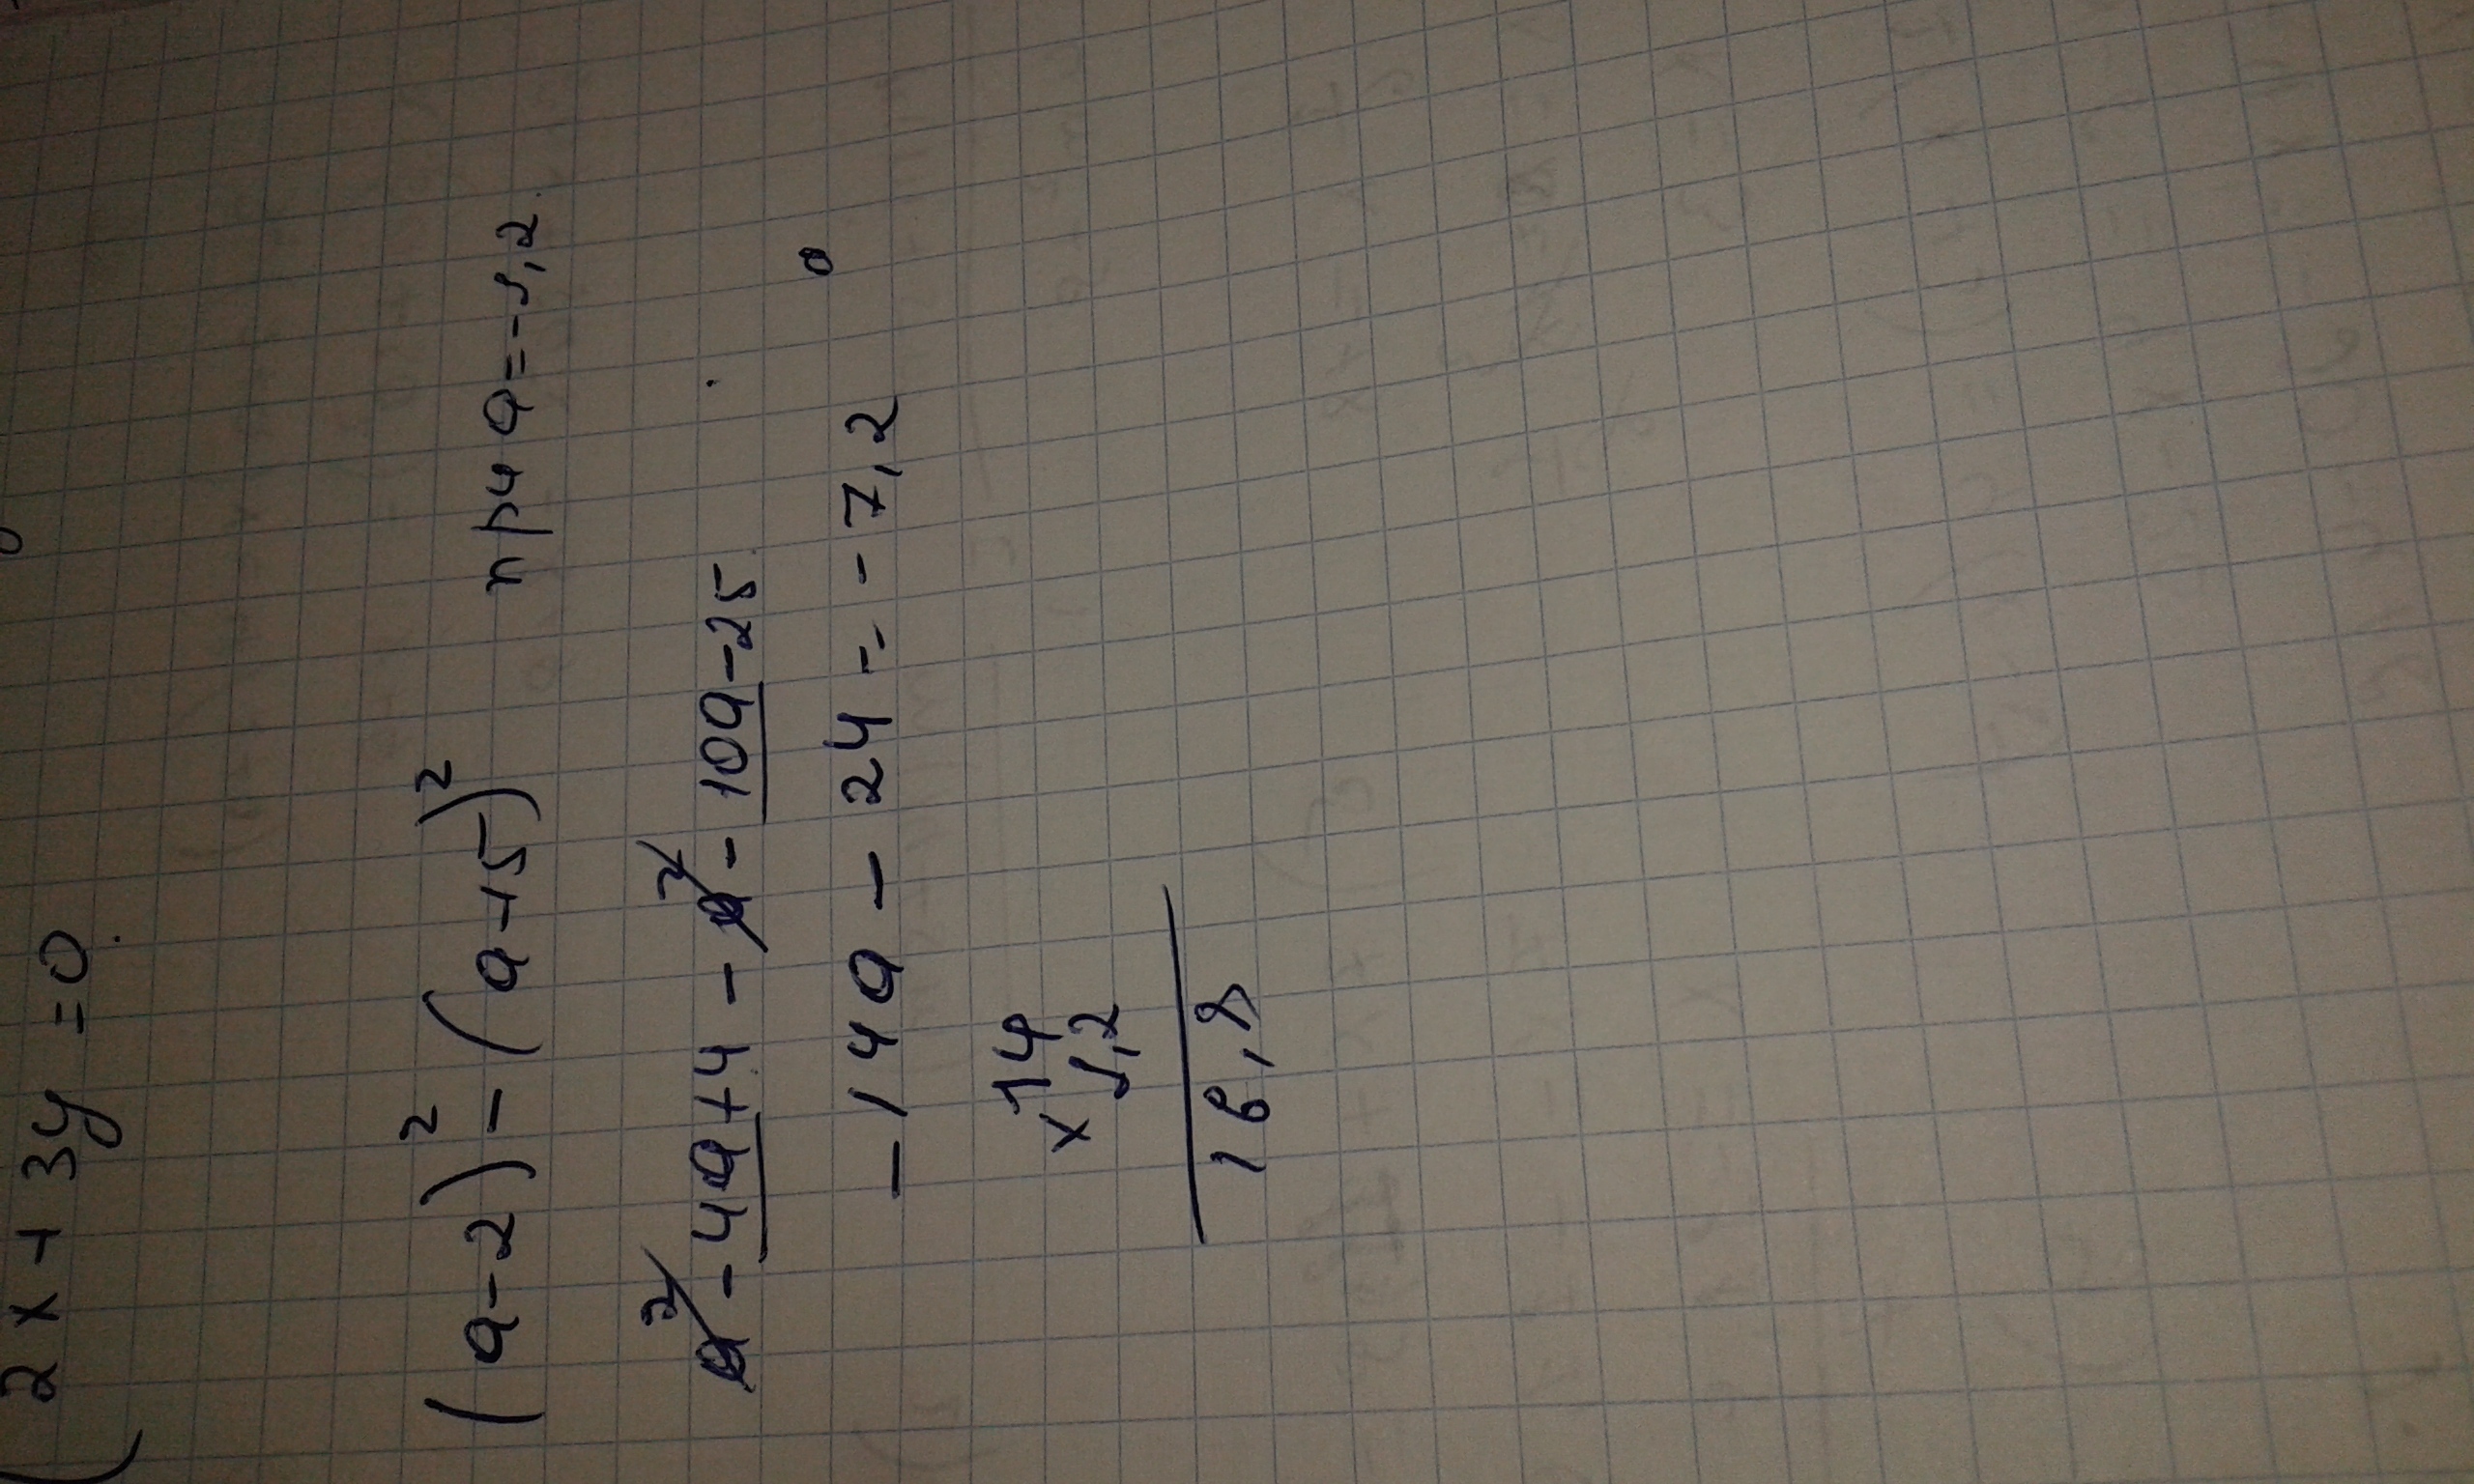 2x+3y=0.
(a-2)²-(a+5)² при a=-1,2.
a²-4a+4-a²-10a-25.
-14a-24=-7,2
×14
1,2
16,8